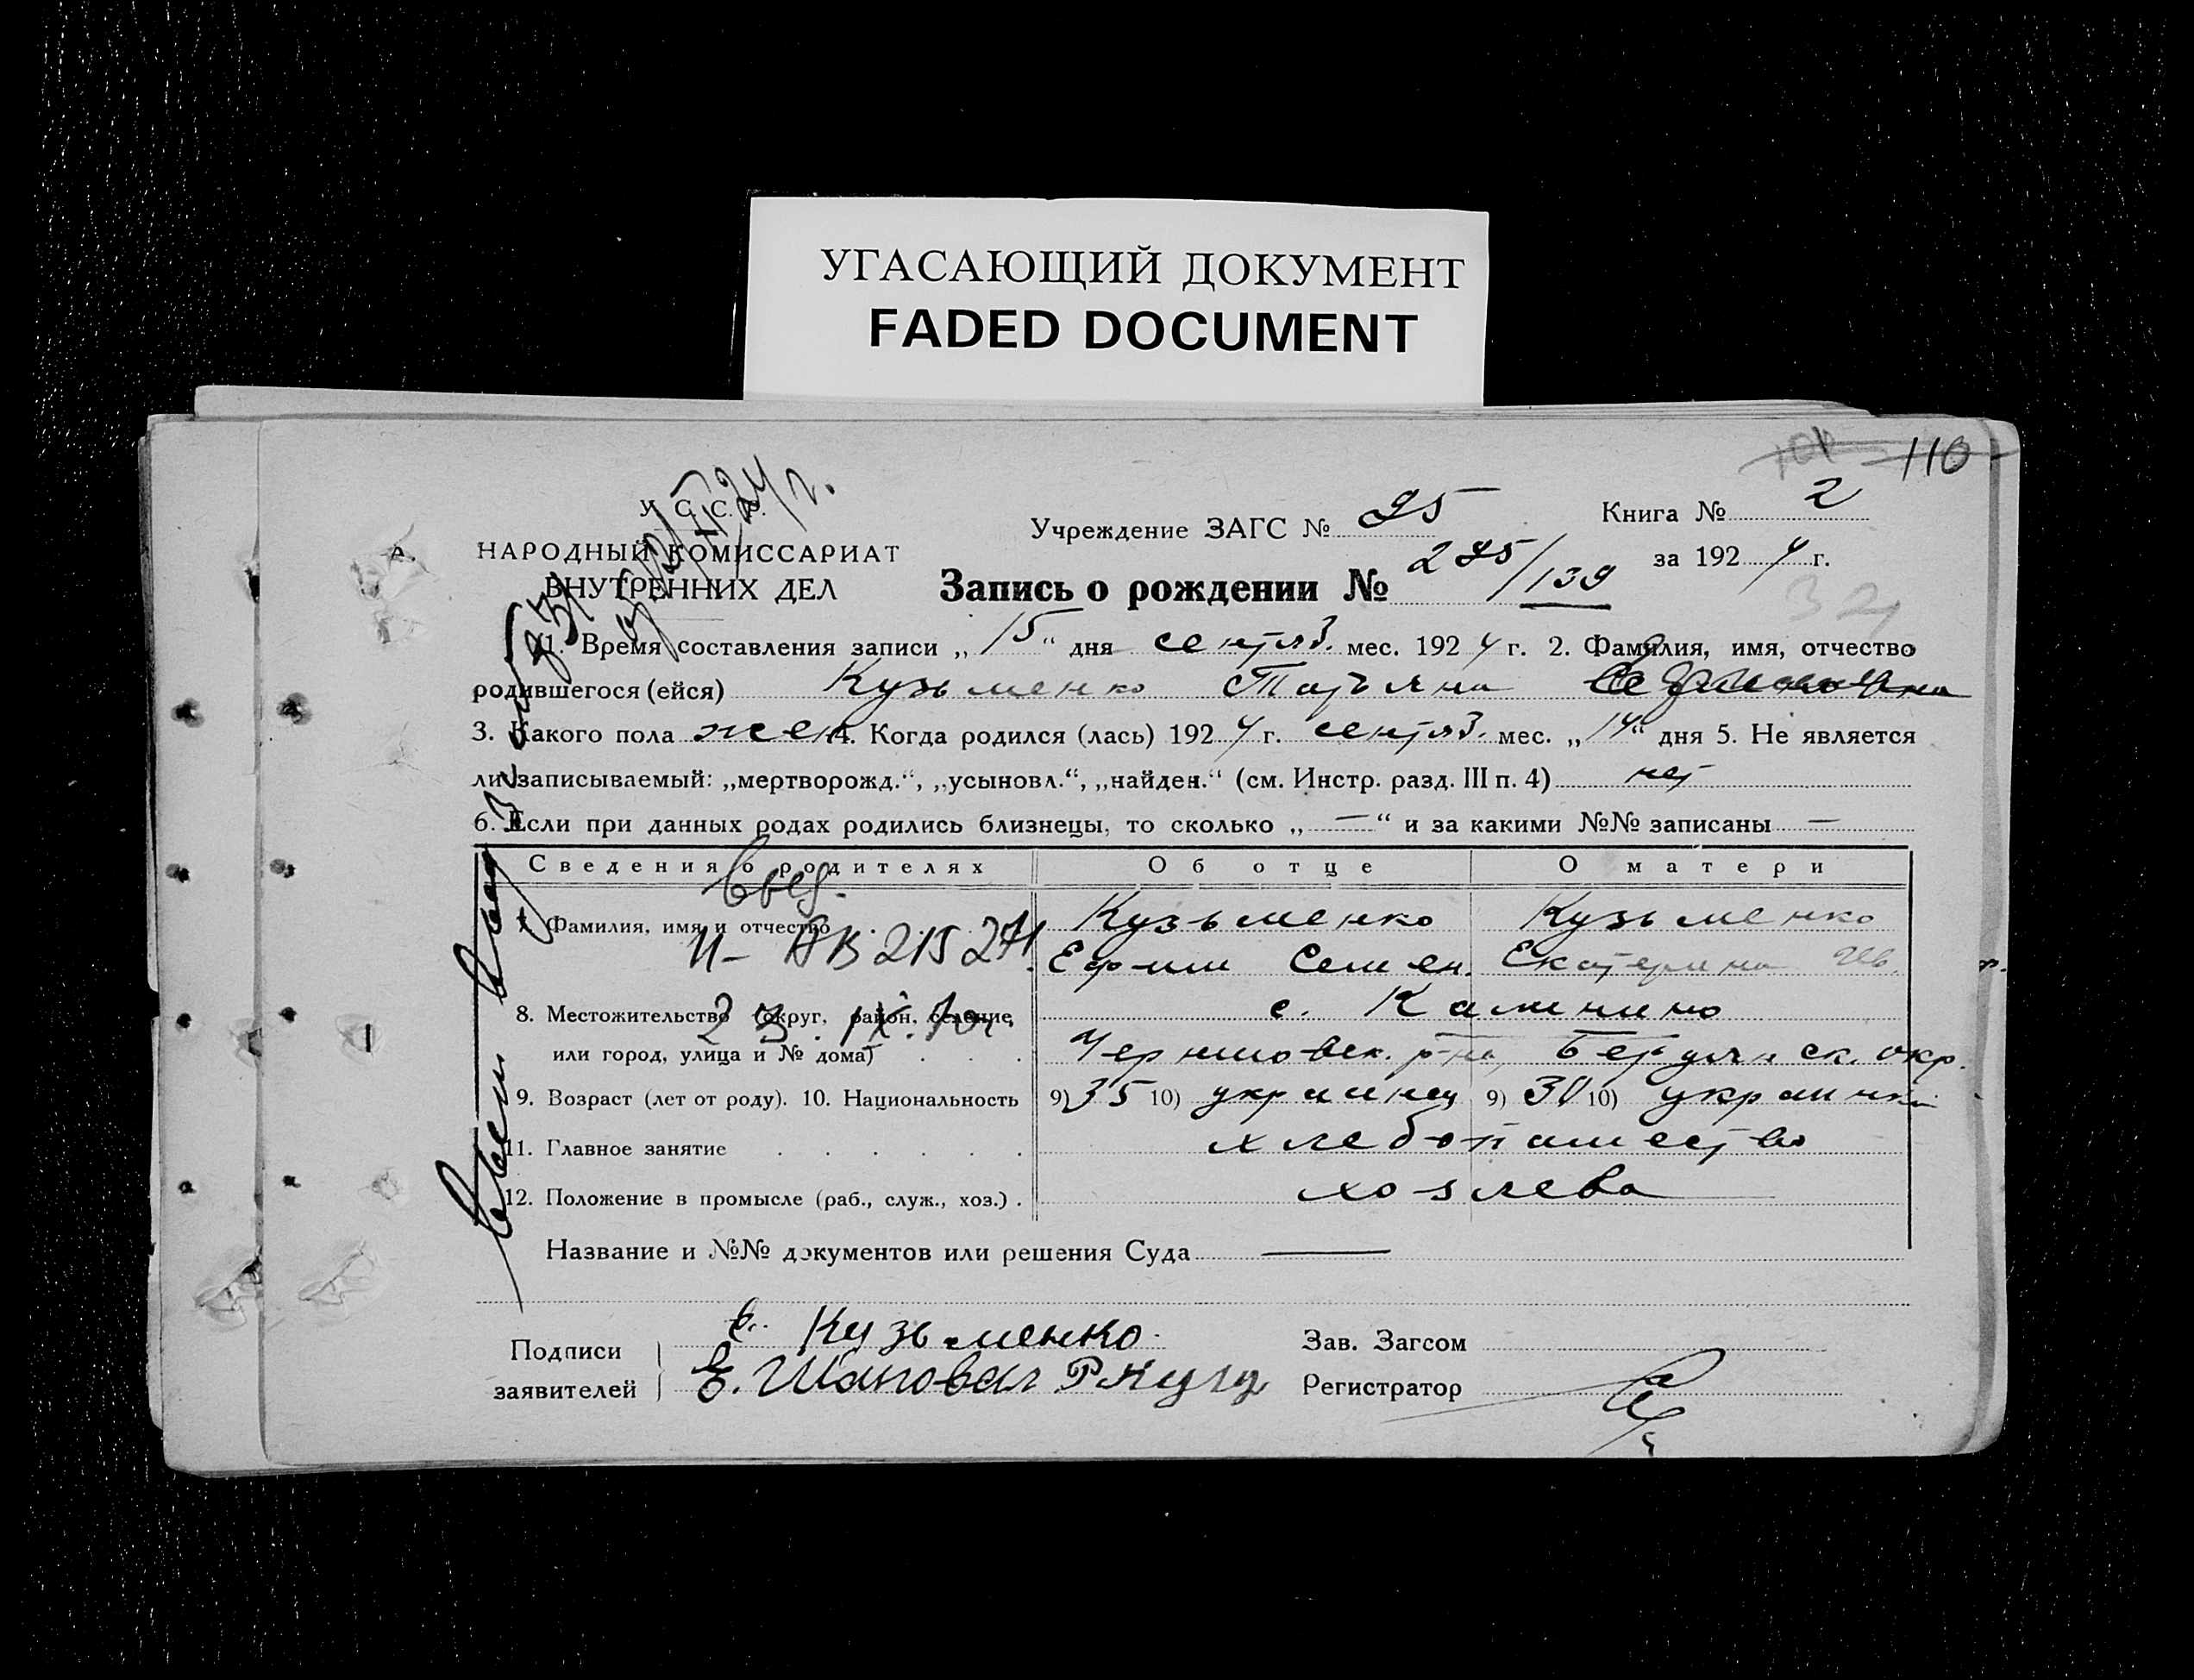 УГАСАЮЩИЙ ДОКУМЕНТ
FADED DOCUMENT
110
У. С. С. Р.
НАРОДНЫЙ КОМИССАРИАТ
ВНУТРЕННИХ ДЕЛ
Учреждение ЗАГС № 95
Книга № 2
за 1924 г.
Запись о рождении № 295/139
1. Время составления записи „15“ дня сентяб. мес. 1924 г. 2. Фамилия, имя, отчество
родившегося (ейся) Кузьменко Татьяна
3. Какого пола жен 4. Когда родился (лась) 1924 г. сентяб. мес. „14“ дня 5. Не является
ли записываемый: „мертворожд.“, „усыновл.“, „найден.“ (см. Инстр. разд. III п. 4) нет
6. Если при данных родах родились близнецы, то сколько „—“ и за какими №№ записаны —
Сведения о родителях Об отце О матери
7. Фамилия, имя и отчество Кузьменко Кузьменко
Ефим Семен. Екатерина Ив.
II-АВ 215271
8. Местожительство (округ, район, селение, с. Калинино
23.IX.70г.
или город, улица и № дома) р-на, Бердянск. окр.
9. Возраст (лет от роду). 10. Национальность 9) 35 10) украинец 9) 30 10) украинка
11. Главное занятие хлебопашество
12. Положение в промысле (раб., служ., хоз.) хозяева
Название и №№ документов или решения Суда —
Подписи заявителей
Е. Кузьменко
Е. Шаповал
Зав. Загсом
Регистратор